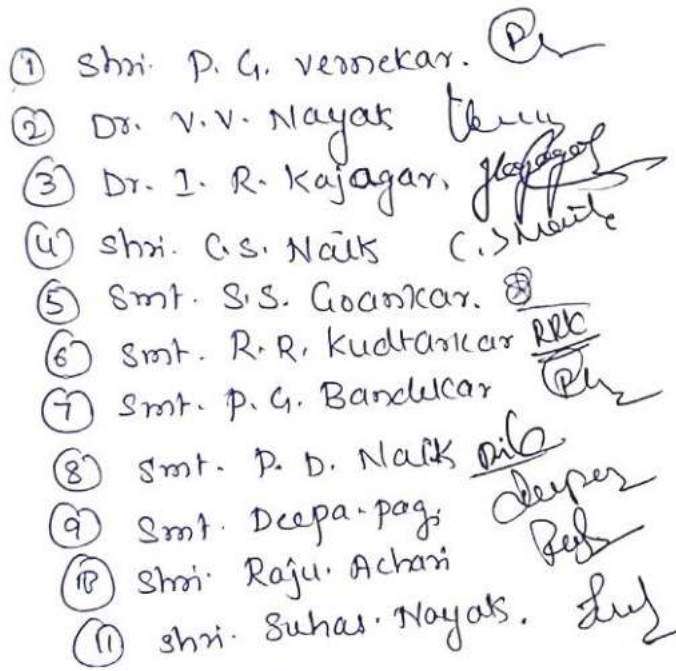 ① Shri. P. G. Vernekar.
② Dr. V.V. Nayak
③ Dr. I. R. Kajagar,
④ Shri. C.S. Naik C.S Naik
⑤ Smt. S.S. Goankar.
⑥ Smt. R.R. Kudtarkar RRK
⑦ Smt. P. G. Bandekar
⑧ Smt. P. D. Naik
⑨ Smt. Deepa. pagi
⑩ Shri. Raju. Achari
⑪ Shri. Suhas. Nayak.